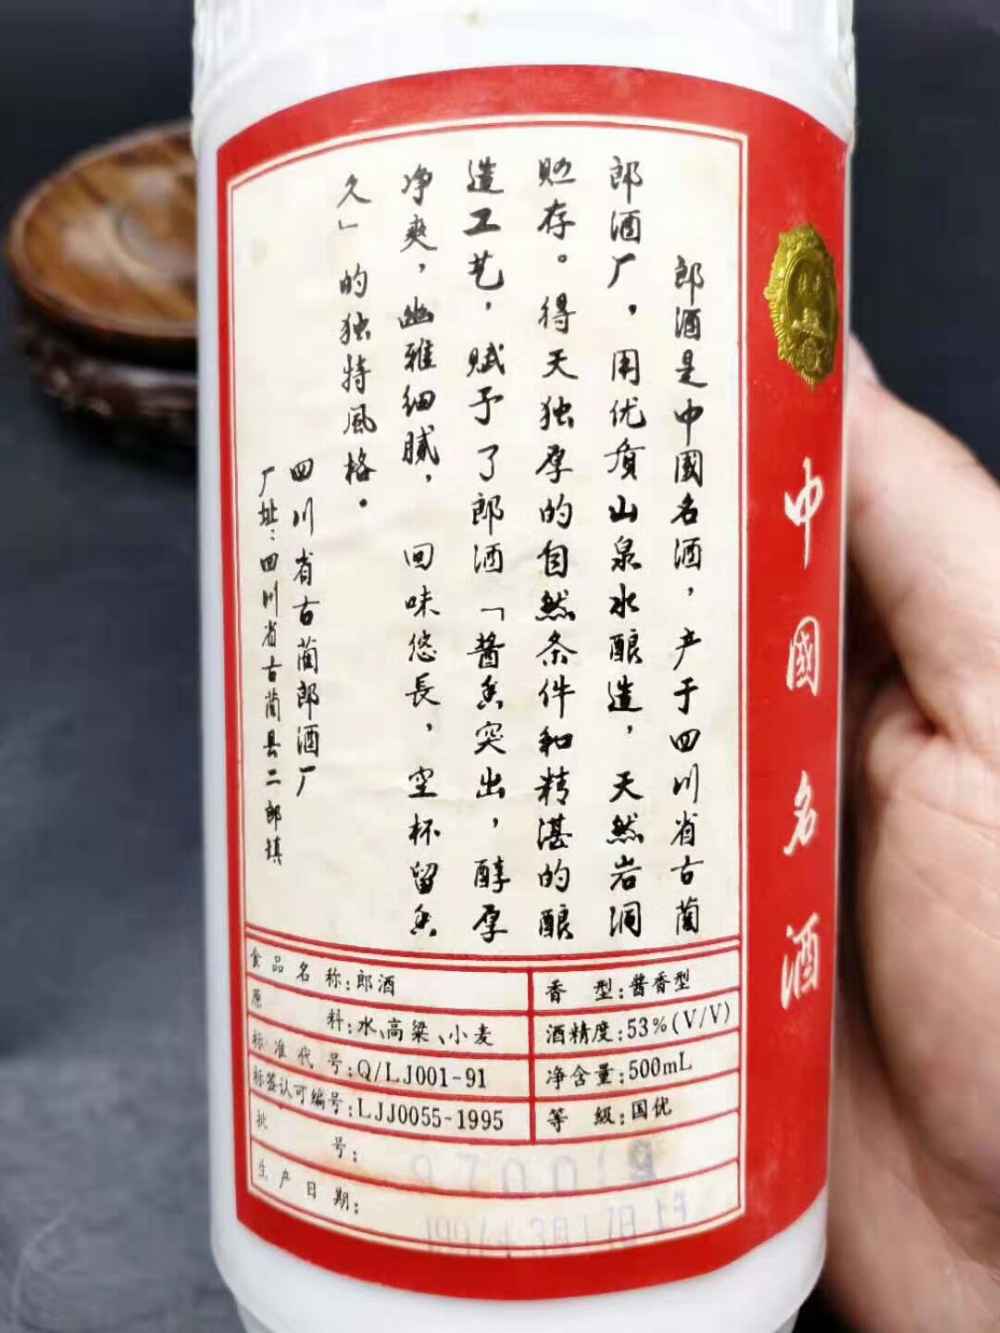 郎酒是中國名酒，产于四川省古蔺
郎酒厂，用优质山泉水酿造，天然岩洞
贮存。得天独厚的自然条件和精湛的酿
造工艺，赋予了郎酒「酱香突出，醇厚
净爽，幽雅细腻，回味悠長，空杯留香
久」的独特風格。
四川省古蔺郎酒厂
厂址：四川省古蔺县二郎镇
中國名酒
食品名称：郎酒
香型：酱香型
原料：水、高粱、小麦
酒精度：53%(V/V)
标准代号：Q/LJ001-91
净含量：500mL
标签认可编号：LJJ0055-1995
等級：国优
批号：
生产日期：